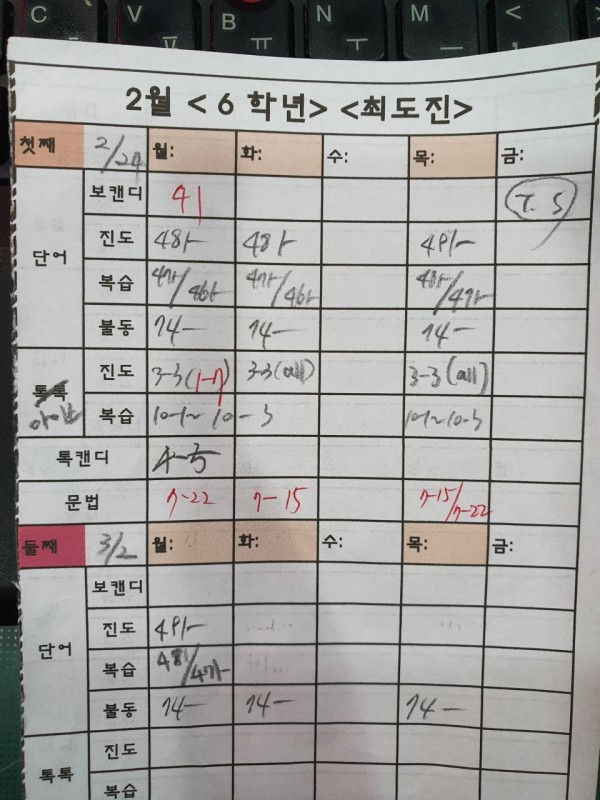 C V B N M <
ㅊ ㅍ ㅠ ㅜ ㅡ
2월 < 6 학년> <최도진>
첫째 2/24 월: 화: 수: 목: 금:
보캔디 41 T.S
단어 진도 48 48 49
복습
불동 74- 74- 74-
톡톡 진도 3-3(1-7) 3-3(all) 3-3(all)
복습 10-1~10-3 10-1~10-3
톡캔디 4-5
문법 7-22 7-15 7-15/7-22
둘째 3/2 월: 화: 수: 목: 금:
보캔디
단어 진도 49
복습
불동 74- 74- 74-
톡톡 진도
복습